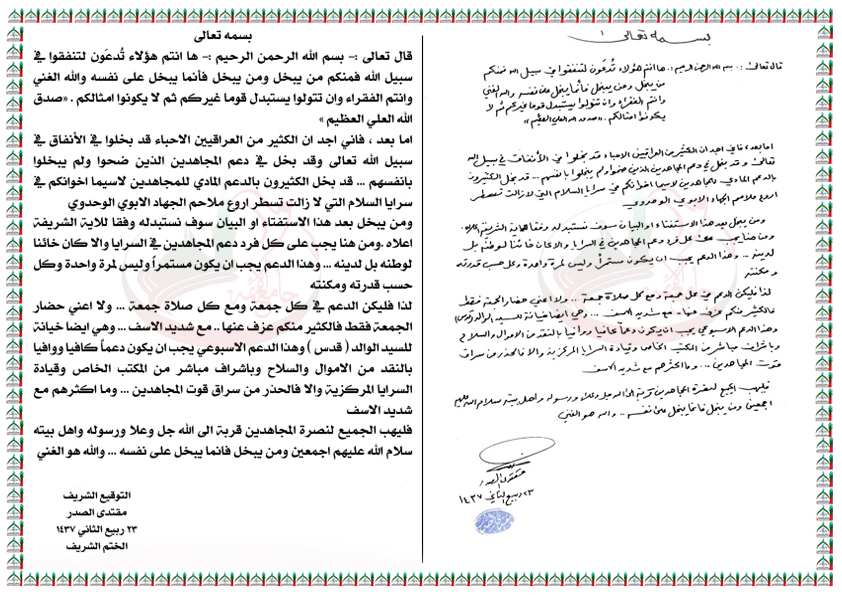 بسمه تعالى
قال تعالى :- بسم الله الرحمن الرحيم :- ها انتم هؤلاء تُدعَون لتنفقوا في
سبيل الله فمنكم من يبخل ومن يبخل فأنما يبخل على نفسه والله الغني
وانتم الفقراء وان تتولوا يستبدل قوما غيركم ثم لا يكونوا امثالكم . «صدق
الله العلي العظيم »
اما بعد ، فاني اجد ان الكثير من العراقيين الاحباء قد بخلوا في الأنفاق في
سبيل الله تعالى وقد بخل في دعم المجاهدين الذين ضحوا ولم يبخلوا
بانفسهم ... قد بخل الكثيرون بالدعم المادي للمجاهدين لاسيما اخوانكم في
سرايا السلام التي لا زالت تسطر اروع ملاحم الجهاد الابوي الوحدوي
ومن يبخل بعد هذا الاستفتاء او البيان سوف نستبدله وفقا للاية الشريفة
اعلاه .ومن هنا يجب على كل فرد دعم المجاهدين في السرايا والا كان خائنا
لوطنه بل لدينه ... وهذا الدعم يجب ان يكون مستمراً وليس لمرة واحدة وكل
حسب قدرته ومكنته
لذا فليكن الدعم في كل جمعة ومع كل صلاة جمعة ... ولا اعني حضار
الجمعة فقط فالكثير منكم عزف عنها .. مع شديد الاسف ... وهي ايضا خيانة
للسيد الوالد ( قدس ) وهذا الدعم الاسبوعي يجب ان يكون دعماً كافيا ووافيا
بالنقد من الاموال والسلاح وباشراف مباشر من المكتب الخاص وقيادة
السرايا المركزية والا فالحذر من سراق قوت المجاهدين ... وما اكثرهم مع
شديد الاسف
فليهب الجميع لنصرة المجاهدين قربة الى الله جل وعلا ورسوله واهل بيته
سلام الله عليهم اجمعين ومن يبخل فانما يبخل على نفسه ... والله هو الغني
التوقيع الشريف
مقتدى الصدر
٢٣ ربيع الثاني ١٤٣٧
الختم الشريف
بسمه تعالى
قال تعالى :. بسم الله الرحمن الرحيم :. ها انتم هؤلاء تُدعَون لتنفقوا في سبيل الله فمنكم
من يبخل ومن يبخل فأنما يبخل على نفسه والله الغني
وانتم الفقراء وان تتولوا يستبدل قوما غيركم ثم لا
يكونوا امثالكم . «صدق الله العلي العظيم »
اما بعد ، فاني اجد ان الكثير من العراقيين الاحباء قد بخلوا في الأنفاق في سبيل الله
تعالى وقد بخل في دعم المجاهدين الذين ضحوا ولم يبخلوا بانفسهم ... قد بخل الكثيرون
بالدعم المادي للمجاهدين لاسيما اخوانكم في سرايا السلام التي لا زالت تسطر
اروع ملاحم الجهاد الابوي الوحدوي
ومن يبخل بعد هذا الاستفتاء او البيان سوف نستبدله وفقا للاية الشريفة اعلاه.
ومن هنا يجب على كل فرد دعم المجاهدين في السرايا والا كان خائنا لوطنه بل
لدينه ... وهذا الدعم يجب ان يكون مستمراً وليس لمرة واحدة وكل حسب قدرته
ومكنته
لذا فليكن الدعم في كل جمعة ومع كل صلاة جمعة ... ولا اعني حضار الجمعة فقط
فالكثير منكم عزف عنها .. مع شديد الاسف ... وهي ايضا خيانة للسيد الوالد (قدس)
وهذا الدعم الاسبوعي يجب ان يكون دعماً كافيا ووافيا بالنقد من الاموال والسلاح
وباشراف مباشر من المكتب الخاص وقيادة السرايا المركزية والا فالحذر من سراق
قوت المجاهدين ... وما اكثرهم مع شديد الاسف
فليهب الجميع لنصرة المجاهدين قربة الى الله جل وعلا ورسوله واهل بيته سلام الله عليهم
اجمعين ومن يبخل فانما يبخل على نفسه ... والله هو الغني
مقتدى الصدر
٢٣ ربيع الثاني ١٤٣٧